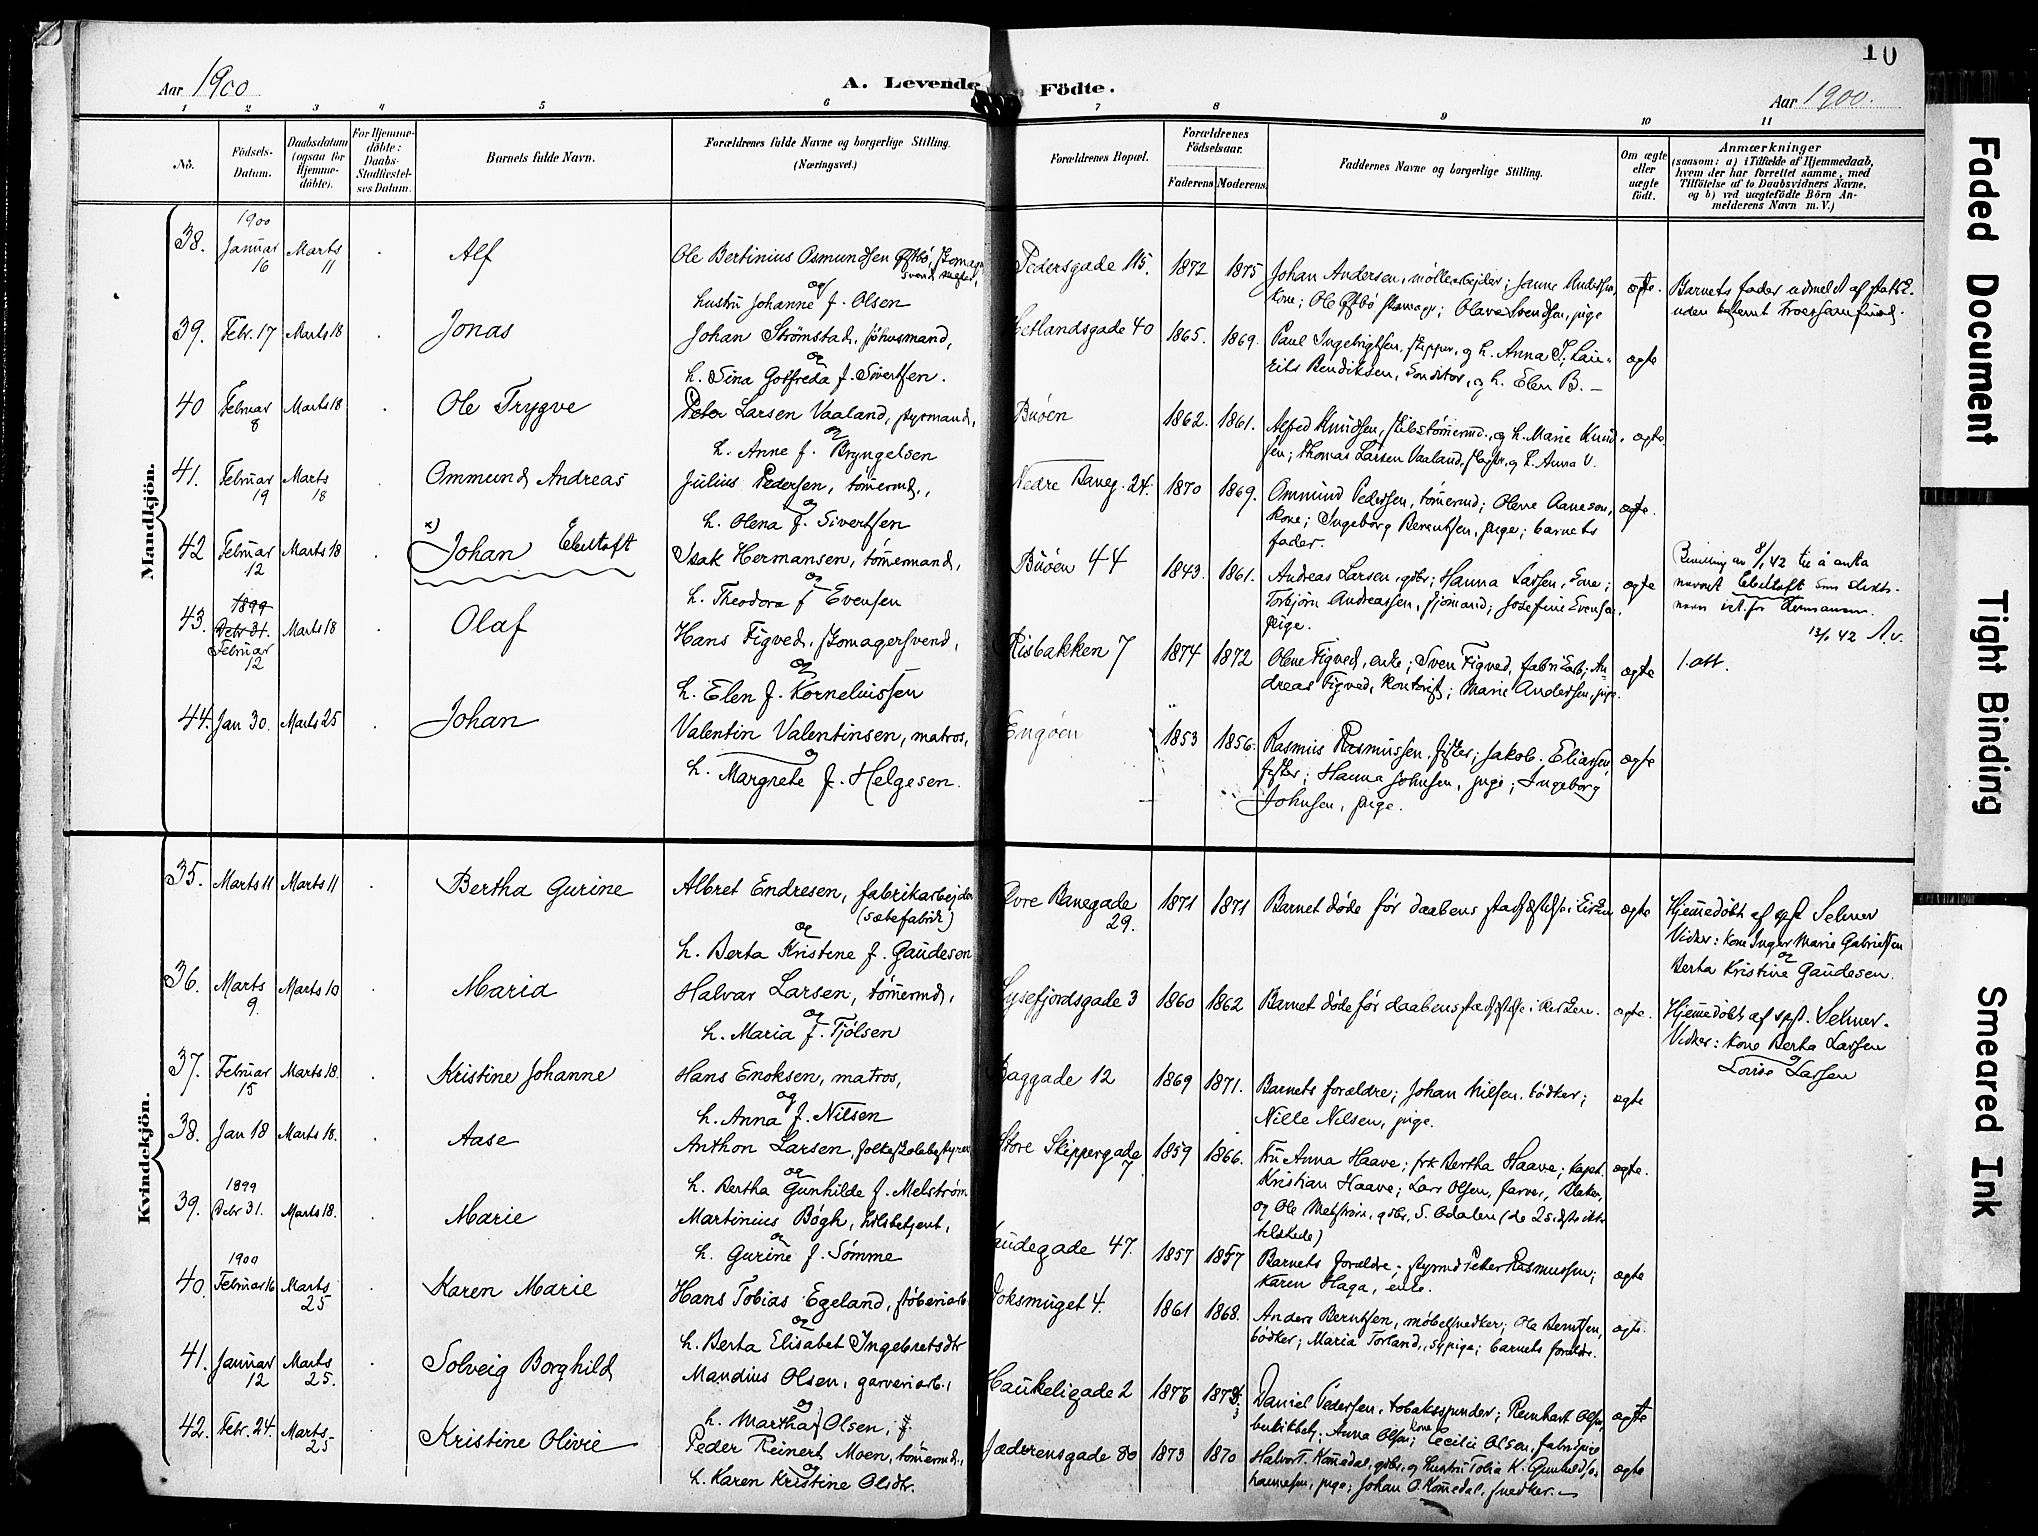 10
Aar 1900
A. Levende Födte.
Aar 1900.
1 2 3 4 5 6 7 8 9 10 11
No. Födsels-Datum. Daabsdatum (ogsaa for Hjemme-döbte). For Hjemme-döbte: Daabs-Stadfæstel-ses Datum. Barnets fulde Navn. Forældrenes fulde Navne og borgerlige Stilling. (Næringsvei.) Forældrenes Bopæl. Forældrenes Födselsaar. Faderens Moderens. Faddernes Navne og borgerlige Stilling. Om ægte eller uægte födt. Anmærkninger
(saasom: a) i Tilfælde af Hjemmedaab,
hvem der har forrettet samme, med
Tilföielse af to Daabsvidners Navne,
og b) ved uægtefödte Börn An-
melderens Navn m. V.)
Mandkjön.
38. 1900 Januar 16 Marts 11 Alf
Ole Bertinius Osmundsen
og
hustru Johanne f. Olsen
Pedersgade 115. 1872 1875
Johan Andersen, møllearbejder; Janne Andersen,
kone; Ole
ægte.
Barnets fader udmeldt af statsk.
uden bestemt Troessamfund.
39. Febr. 17 Marts 18 Jonas
Johan Strömstad, söhusmand,
og
h. Sina Gotfreda f. Sivertsen.
Hetlandsgade 40 1865. 1869.
Paul Ingebrigtsen, skipper, og h. Anna I; Lau-
rits Bendiksen, konditor, og h. Elen B. –
ægte
40 Februar 8 Marts 18 Ole Trygve
Peter Larsen Vaaland, styrmand,
og
h. Anne f. Bryngelsen
Buöen 1862. 1861.
Alfred Knudsen, skibstømermd., og h. Marie Knud-
sen; Thomas Larsen Vaaland, og h. Anna V.
ægte
41. Februar 19 Marts 18 Ommund Andreas
Julius Pedersen, tömermd.,
og
h. Olena f. Sivertsen
Nedre Baneg. 24. 1870 1869.
Ommund Pedersen, tömermd; Olene Aanesen,
kone; Ingeborg Berentsen, pige; barnets
fader.
ægte.
42 Februar 12 Marts 18 x) Johan Ebeltoft
Isak Hermansen, tömermand,
og
h. Theodora f Evensen
Buöen 44 1843. 1861.
Andreas Larsen, gdbr; Hanna Larsen, kone;
Torbjörn Andreassen, sjömand; Josefine Evensen,
pige.
ægte
Bevilling av 8/1 42 til å anta
navnet Ebeltoft som slekts-
navn ist. for Hermansen.
13/1 42
43. 1899 Debr 31. Februar 12 Marts 18 Olaf
Hans Figved, skomagersvend,
og
h. Elen f. Korneliussen
Risbakken 7 1874 1872
Olene Figved, enke; Sven Figved, fabrikarb; An-
dreas Figved, kontorist; Marie Andersen, pige.
ægte
1. att.
44. Jan 30. Marts 25 Johan
Valentin Valentinsen, matros,
og
h. Margrete f. Helgesen.
Engöen 1853 1856.
Rasmus Rasmussen, fisker; Jakob Eliassen,
fisker; Hanna Johnsen, pige; Ingeborg
Johnsen, pige.
ægte
Kvindekjön.
35. Marts 11 Marts 11 Bertha Gurine
Albret Endresen, fabrikarbejder
(sæbefabrik)
og
h. Berta Kristine f. Gaudeson
Övre Banegade 29. 1871 1871
Barnet döde för daabens stadfæstelse i kirken
ægte
Hjemmedöbt af Selmer
Vidner: kone Inger Marie Gabrielsen
og
Berta Kristine Gaudesen.
36. Marts 9. Marts 10 Maria
Halvar Larsen, tömermd,
og
h. Maria f. Tjölsen
Lysefjordsgade 3 1860 1862
Barnet döde för daabens stadfæstelse i kirken.
ægte.
Hjemmedöbt af Selmer.
Vidner: kone Berta Larsen
og
Lovise Larsen
37. Februar 15 Marts 18. Kristine Johanne
Hans Enoksen, matros,
og
h. Anna f. Nilsen
Baggade 12 1869 1871.
Barnets forældre; Johan Nilsen, bödker;
Nille Nilsen, pige.
ægte
38. Jan 18 Marts 18. Aase
Anthon Larsen, folkeskolebestyrer
og
h. Bertha Gunhilde f. Melström
Store Skippergade 7. 1859 1866.
Fru Anna Haave; frk Bertha Haave; kapt.
Kristian Haave; Lars Olsen, farver, Blaker,
og Ole Melström, gdbr, S. Odalen (de 2 sidste ikke
tilstede)
ægte.
39. 1899 Debr 31. Marts 18. Marie
Martinius Bögh, tolbetjent,
og
h. Gurine f. Sömme
Gaudegade 47. 1857 1857
Barnets forældre; styrmd Peter Rasmussen;
Karen Haga, enke.
ægte
40. 1900 Februar 16 Marts 25 Karen Marie
Hans Tobias Egeland, støberiarb.
og
h. Berta Elisabet Ingebretsdtr
Doksmuget 4. 1861 1868.
Anders Berntsen, möbelsnedker; Ole Berntsen,
bödker; Maria Torland, sypige; barnets foreldr.
ægte.
41. Januar 12 Marts 25. Solveig Borghild
Mandius Olsen, garveriarb.,
og
h. Martha f Olsen,
Haukeligade 2 1876
Daniel Pedersen, tobaksspinder; Reinhart Olsen,
Anna Olsen, kone; Cecilie Olsen, fabrikpige
ægte
42. Febr. 24. Marts 25 Kristine Olivie
Peder Reinert Moen, tömermd.,
og
h. Karen Kristine Olsdtr.
Jæderensgade 80 1873 1870
Halvor T. Komedal, gdbr, og hustru Tobia K; Gunhild Jo-
hannesen, pige; Johan O. Komedal, snedker. –
ægte
Faded Document
Tight Binding
Smeared Ink